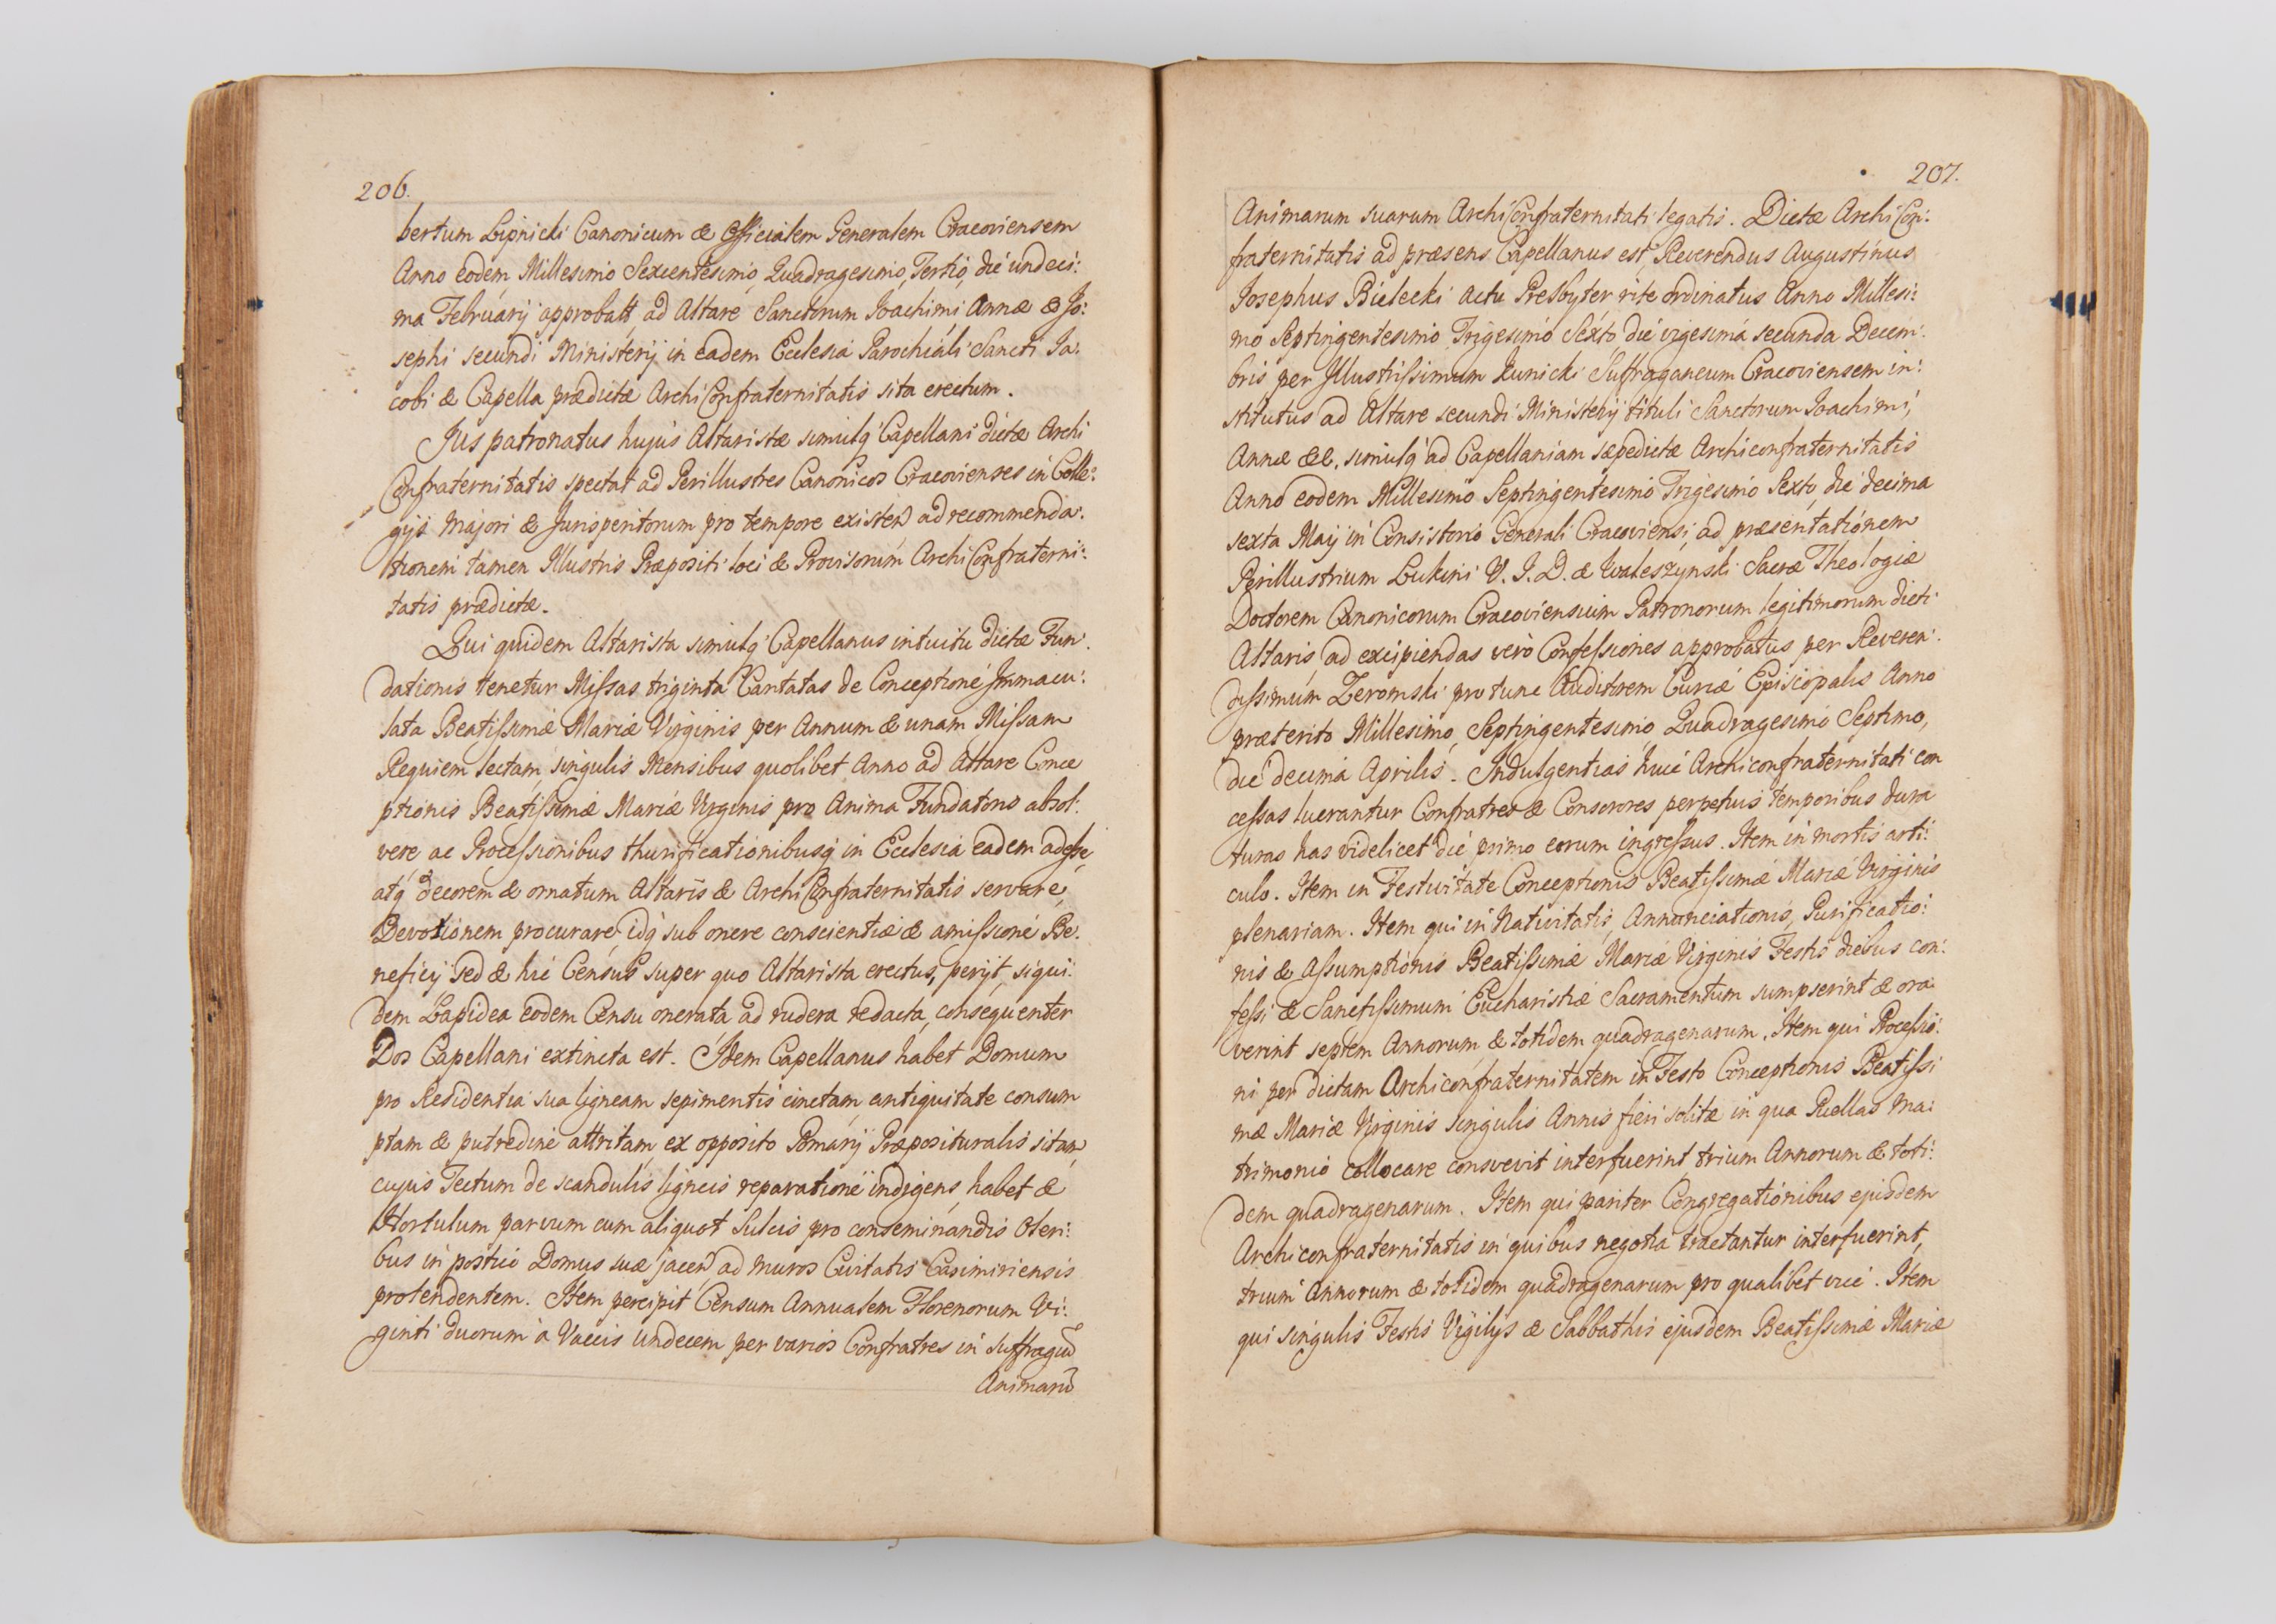 206.
bertum Lipnicki Canonicum & Officialem Generalem Cracoviensem
Anno eodem Millesimo Sexcentesimo, Quadragesimo, Tertio, die undeci:
ma Februarij approbatt ad Altare Sanctorum Joachimi Annæ & Jo:
sephi secundi Ministerij in eadem Ecclesia Parochiali Sancti Ja:
cobi & Capella prædictæ ArchiConfraternitatis sita erectum.
Jus patronatus hujus Altaristæ simulq Capellani dictæ Archi
Confraternitatis spectat ad Perillustres Canonicos Cracovienses in Colle:
gijs Majori & Jurisperitorum pro tempore existen ad recommenda:
tionem tamen Illustris Præpositi loci & Provisorum ArchiConfraterni:
tatis prædictæ.
Qui quidem Altarista simulq Capellanus intuitu dictæ Fun:
dationis tenetur Missas triginta Cantatas de Conceptione Immacu:
lata Beatissimæ Mariæ Virginis per Annum & unam Missam
Requiem lectam singulis Mensibus quolibet Anno ad Altare Conce
ptionis Beatissimæ Mariæ Virginis pro Anima Fundatoris absol:
vere ac Processionibus thurificationibusq in Ecclesia eadem adesse,
atq decorem & ornatum Altaris & ArchiConfraternitatis servare,
Devotionem procurare, idq sub onere conscientiæ & amissione Be:
neficij sed & hic Census super quo Altarista erectus, perijt, siqui:
dem Lapidea eodem Censu onerata ad rudera redacta, consequenter
Dos Capellani extincta est. Idem Capellanus habet Domum
pro Residentia sua ligneam sepimentis cinctam, antiquitate consum
ptam & putredine attritam ex opposito Pomarij Præposituralis sitam,
cujus Tectum de scandulis ligneis reparatione indigens, habet &
Hortulum parvum cum aliquot Sulcis pro conseminandis Oleri:
bus in postico Domus suæ jacen ad muros Civitatis Casimiriensis
protendentem. Item percipit Censum Annualem Florenorum Vi:
ginti duorum a Vaccis undecem per varios Confratres in suffragiũ
Animarũ
207.
Animarum suarum ArchiConfraternitati legatis. Dictæ ArchiCon:
fraternitatis ad præsens Capellanus est, Reverendus Augustinus
Josephus Bielecki Actu Presbyter rite ordinatus Anno Millesi:
mo Septingentesimo Trigesimo Sexto die vigesima secunda Decem:
bris per Illustrissimum Kunicki Suffraganeum Cracoviensem in:
stitutus ad Altare secundi Ministerij tituli Sanctorum Joachimi,
Annæ &c. simulq ad Capellaniam sæpedictæ Archiconfraternitatis
Anno eodem Millesimo Septingentesimo Trigesimo Sexto, die decima
sexta Maij in Consistorio Generali Cracoviensi, ad præsentationem
Perillustrium Lukini V. J. D. & Waleszynski Sacræ Theologiæ
Doctorem Canonicorum Cracoviensium Patronorum legitimorum dicti
Altaris ad excipiendas vero Confessiones approbatus per Reveren:
dissimum Zeromski pro tunc Auditorem Curiæ Episcopalis Anno
præterito Millesimo, Septingentesimo, Quadragesimo Septimo,
die decima Aprilis. Indulgentias huic Archiconfraternitati con
cessas lucrantur Confratres & Consorores perpetuis temporibus dura
turas has videlicet die primo eorum ingressus. Item in mortis arti:
culo. Item in Festivitate Conceptionis Beatissimæ Mariæ Virginis
plenariam. Item qui in Nativitatis, Annunciationis, Purificatio:
nis & Assumptionis Beatissimæ Mariæ Virginis Festis diebus con:
fessi & Sanctissimum Eucharistiæ Sacramentum sumpserint & ora:
verint septem Annorum & totidem quadragenarum. Item qui Processio:
ni per dictam Archiconfraternitatem in Festo Conceptionis Beatissi
mæ Mariæ Virginis singulis Annis fieri solitæ in qua Puellas ma:
trimonio collocare consvevit interfuerint trium Annorum & toti:
dem quadragenarum. Item qui pariter Congregationibus ejusdem
Archiconfraternitatis in quibus negotia tractantur interfuerint,
trium Annorum & totidem quadragenarum pro qualibet vice. Item
qui singulis Festis Vigilijs & Sabbathis ejusdem Beatissimæ Mariæ